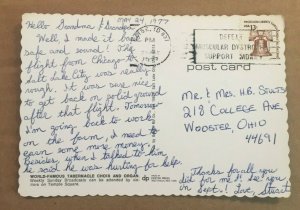 MAY 24, 1977
Hello Grandma & Grandpa
Well, I made it back
safe and sound! The
flight from Chicago to
Salt Lake City was really
rough. It was sure nice
to get back on solid ground
after that flight. Tomorrow
I'm going back to work
on the farm, I need to
earn some more money.
Besides, when I talked to him
he said he was hurting for help.
WORLD-FAMOUS TABERNACLE CHOIR AND ORGAN
Weekly Sunday Broadcasts can be attended by visi-
tors on Temple Square.
PM
1977
DEFEAT
MUSCULAR DYSTROPHY
SUPPORT MDA
13c
post card
dp
Mr. & Mrs. H.B. Stults
218 College Ave.
Wooster, Ohio
44691
Thanks for all you
did for me & I'll see you
in Sept.! Love, Stuart